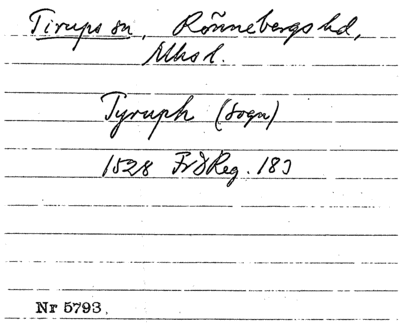 Tirups sn, Rönnebergs hd,
Mhsl.
Tyruph (sogn)
1528 FrdReg. 183
Nr 5793.